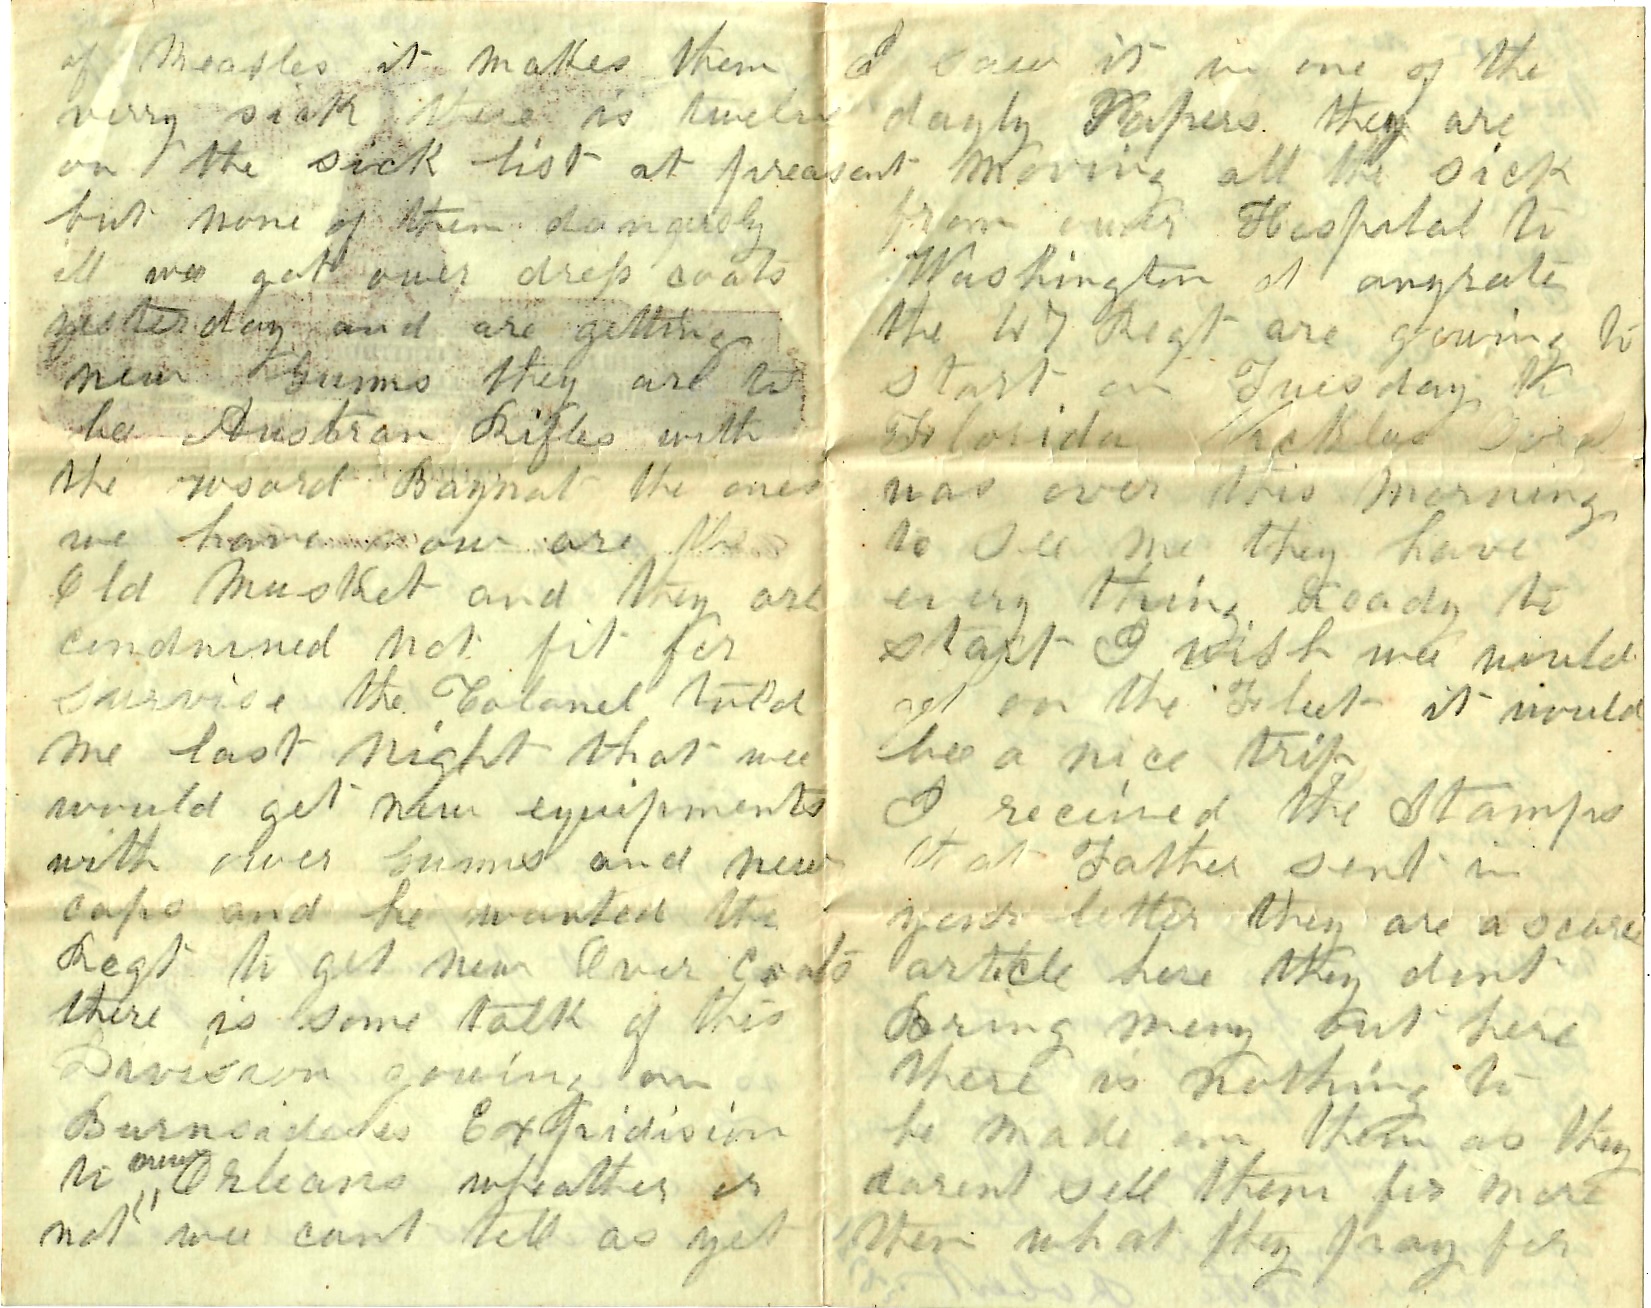 of Measles it makes them
verry sick there is twelve
on the sick list at preasent
but none of them dangersly
ill we got ower dress coats
yesterday and are getting
new Gunns they are to
be Austran Rifles with
the swoard Baynat the ones
we have now are the
Old Musket and they are
condmned not fit for
survise the Colonel told
me last night that wee
would get new equipments
with ower Gunns and new
caps and he wanted the
Regt to get new Over Coats
there is some talk of this
Division gowing on
Burnsideses Expidision
to new Orleans wheather or
not wee cant tell as yet
I saw it in one of the
dayly Papers they are
moving all the sick
from ower Hospital to
Washington at anyrate
the 47 Regt are gowing to
start on Tuesday to
Florida
was over this morning
to see me they have
every thing ready to
start I wish wee would
get on the Fleet it would
bee a nice trip
I received the Stamps
that Father sent in
your letter they are a scarce
article here they dont
Bring meny out here
there is nothing to
be made on them as they
darent sell them for more
then what they pay for